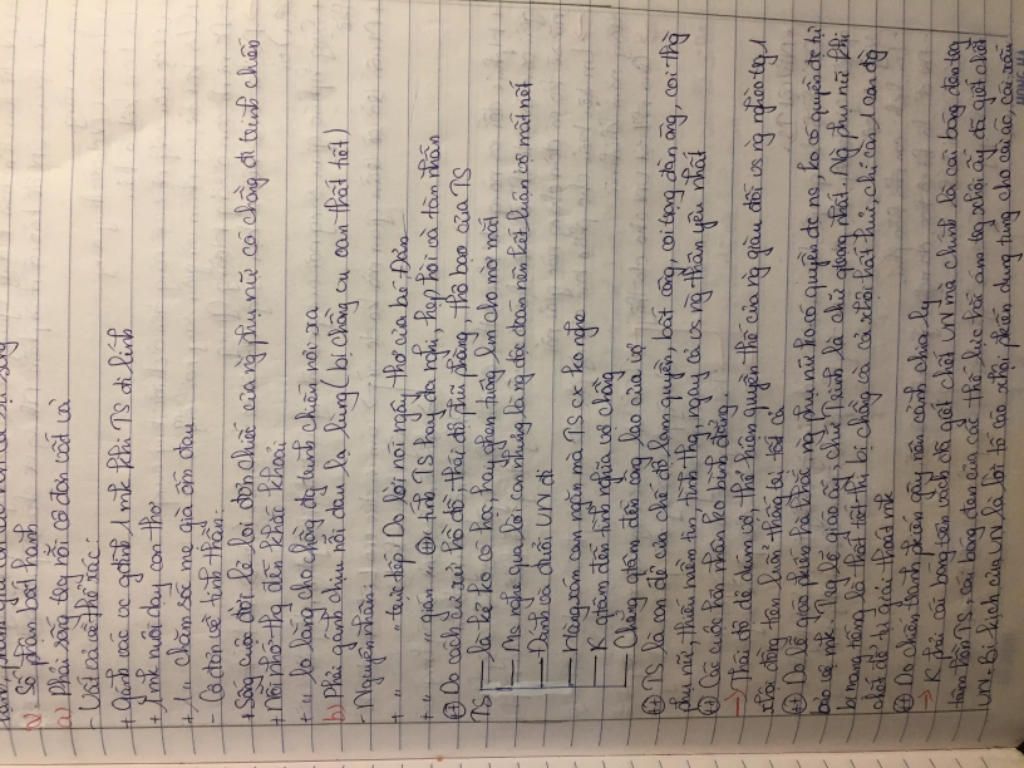 2) Số phận bất hạnh
a) Phải sống trog nỗi cô đơn vất vả
- Vất vả về thể xác:
+ Gánh vác cv gđình 1 mk khi TS đi lính
+ 1 mk nuôi dạy con thơ
+ 1 " chăm sóc mẹ già ốm đau
- Cô đơn về tinh thần:
+ Sống cuộc đời lẻ loi đơn chiếc của ng phụ nữ có chồng đi chinh chiến
+ Nỗi nhớ thg đến khắc khoải
+ " lo lắng cho chồng đg chinh chiến nơi xa
b) Phải gánh chịu nỗi đau lạ lùng (bị chồng cu oan thất tiết)
- Nguyên nhân:
+ " trực tiếp: Do lời nói ngây thơ của bé Đản
+ " gián " ⊕ Do tính TS hay đa nghi, hẹp hòi và tàn nhẫn
⊕ Do cách cư xử hồ đồ, thái độ phũ phàng, thô bạo của TS
TS là kẻ ko có họ, hay ghen tuông, lm cho mờ mắt
Ms nghe qua lời con nhưng là ng độc đoán nên kết luận vợ mất nết
Đánh và đuổi VN đi
Hàng xóm can ngăn mà TS cx ko nghe
K quan đến tình nghĩa vợ chồng
Chẳng quan đến công lao của vợ
⊕ TS là con đẻ của chế độ lam quyền, bất công, coi trọng đàn ông, coi thg
phụ nữ, thiếu niềm tin, tình thg, ngay cả vs ng thân yêu nhất
⊕ Cả cuộc hôn nhân ko bình đẳng.
→ Thái độ đối vs vợ, thể hiện quyền thế của ng giàu đối vs ng nghèo trog 1
xhội đồng tiền luôn thắng thế tất cả
⊕ Do lễ giáo phiến hà khắc, ng phụ nữ ko có quyền đc ns, ko có quyền đc tự
bảo vệ mk. Trog lễ giáo ấy, chữ Trinh là chữ qtrọng nhất. Ng phụ nữ khi
bị mang tiếng là thất tiết thì bị chồng và cả xhội hắt hủi, chỉ còn 1 con đg
chết để tự giải thoát mk
⊕ Do chiến tranh pkiến gây nên cảnh chia ly
→ K phải cái bóng trên vách đã giết chết VN mà chính là cái bóng đen trog
tâm hồn TS, cái bóng đen của các thế lực hắc ám trog xhội ấy đã giết chết
VN. Bi kịch của VN là lời tố cáo xhội pkiến dung túng cho cái ác, cái xấu